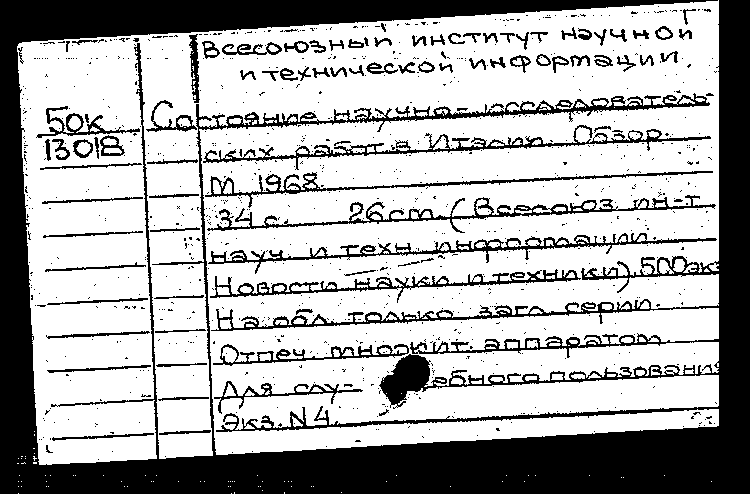 Всесоюзный институт научной
и технической информации.
50к
13018
Состояние научно-исследователь-
ских работ в Италии. Обзор.
М., 1968.
34 с. 26 cm. (Всесоюз. ин-т
науч. и техн. информации.
Новости науки и техники). 500 экз
На обл. только загл. серии.
Отпеч. множит. аппаратом.
Для слу- ебного пользования
Экз. N 4.